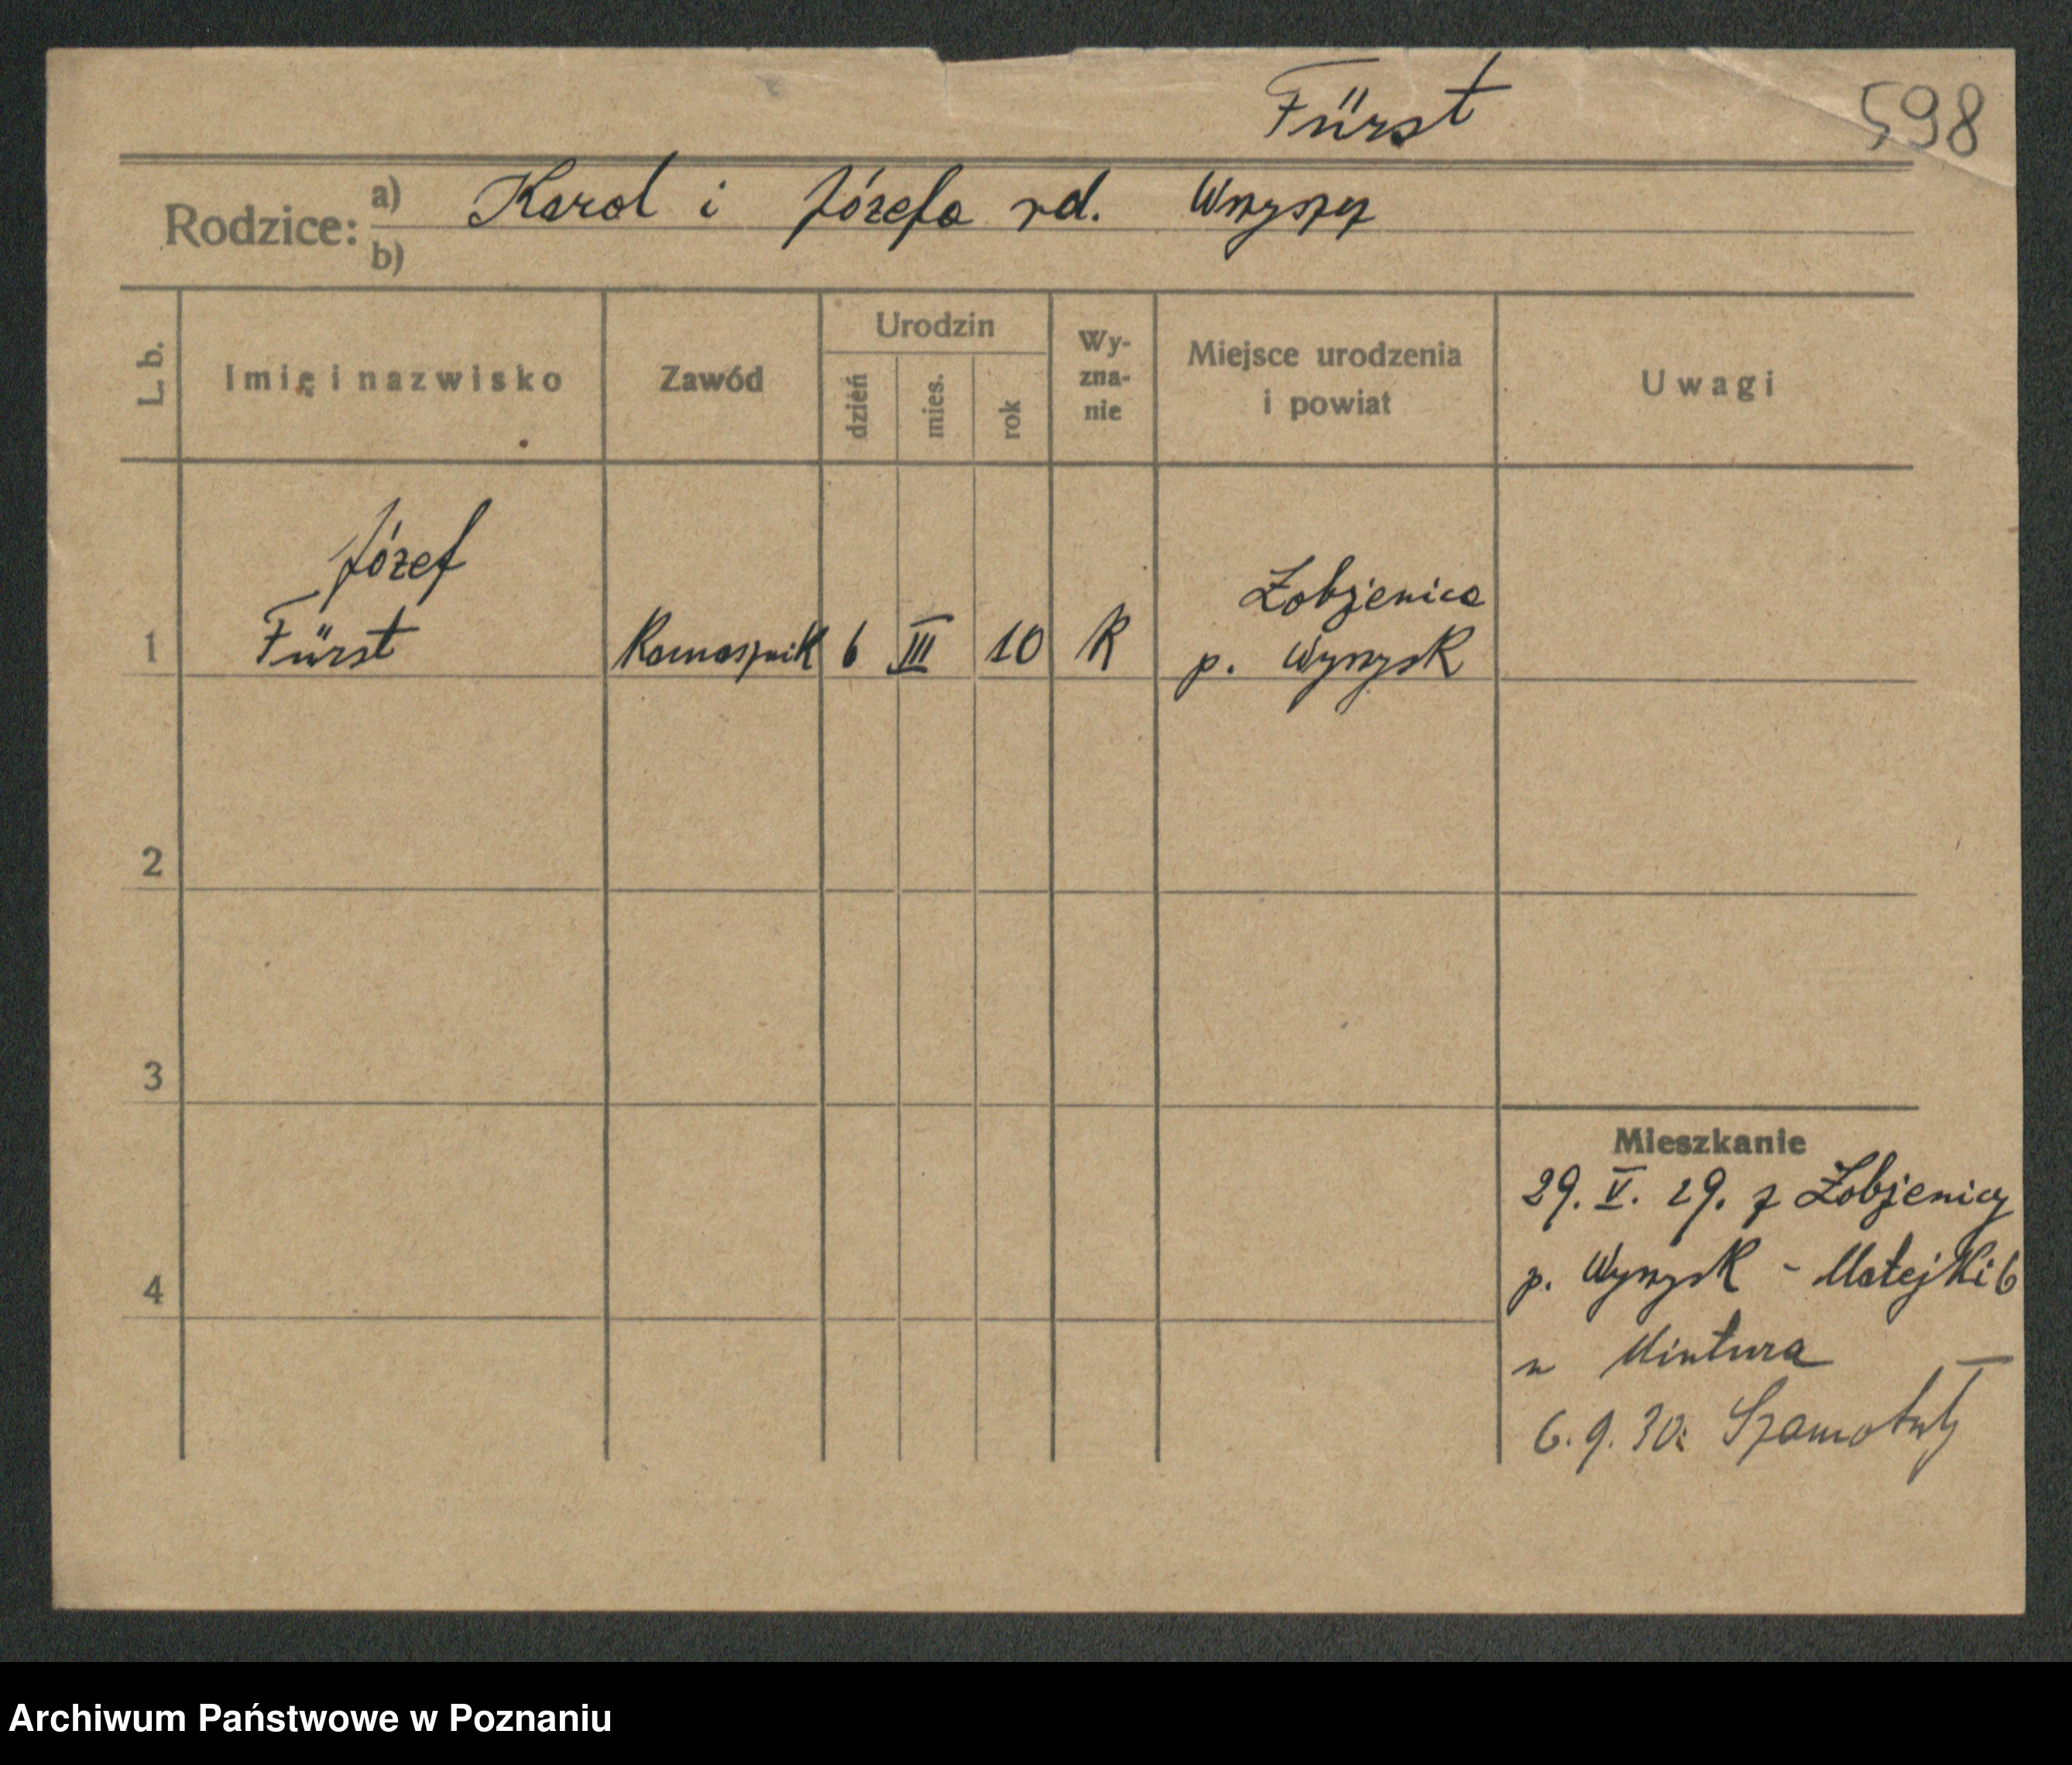 Fürst
598
Rodzice: a) Karol i Józefa rd.
b)
L. b. Imię i nazwisko Zawód Urodzin dzień mies. rok Wy-zna-nie Miejsce urodzenia i powiat Uwagi
Józef Łobżenica
1 Fürst Kamasznik 6 III 10 R p. Wyrzysk
2
3
4
Mieszkanie
29. V. 29. z Łobżenicy
p. Wyrzysk - Matejki 6
u Mintura
6. 9. 30: Szamotuły
Archiwum Państwowe w Poznaniu